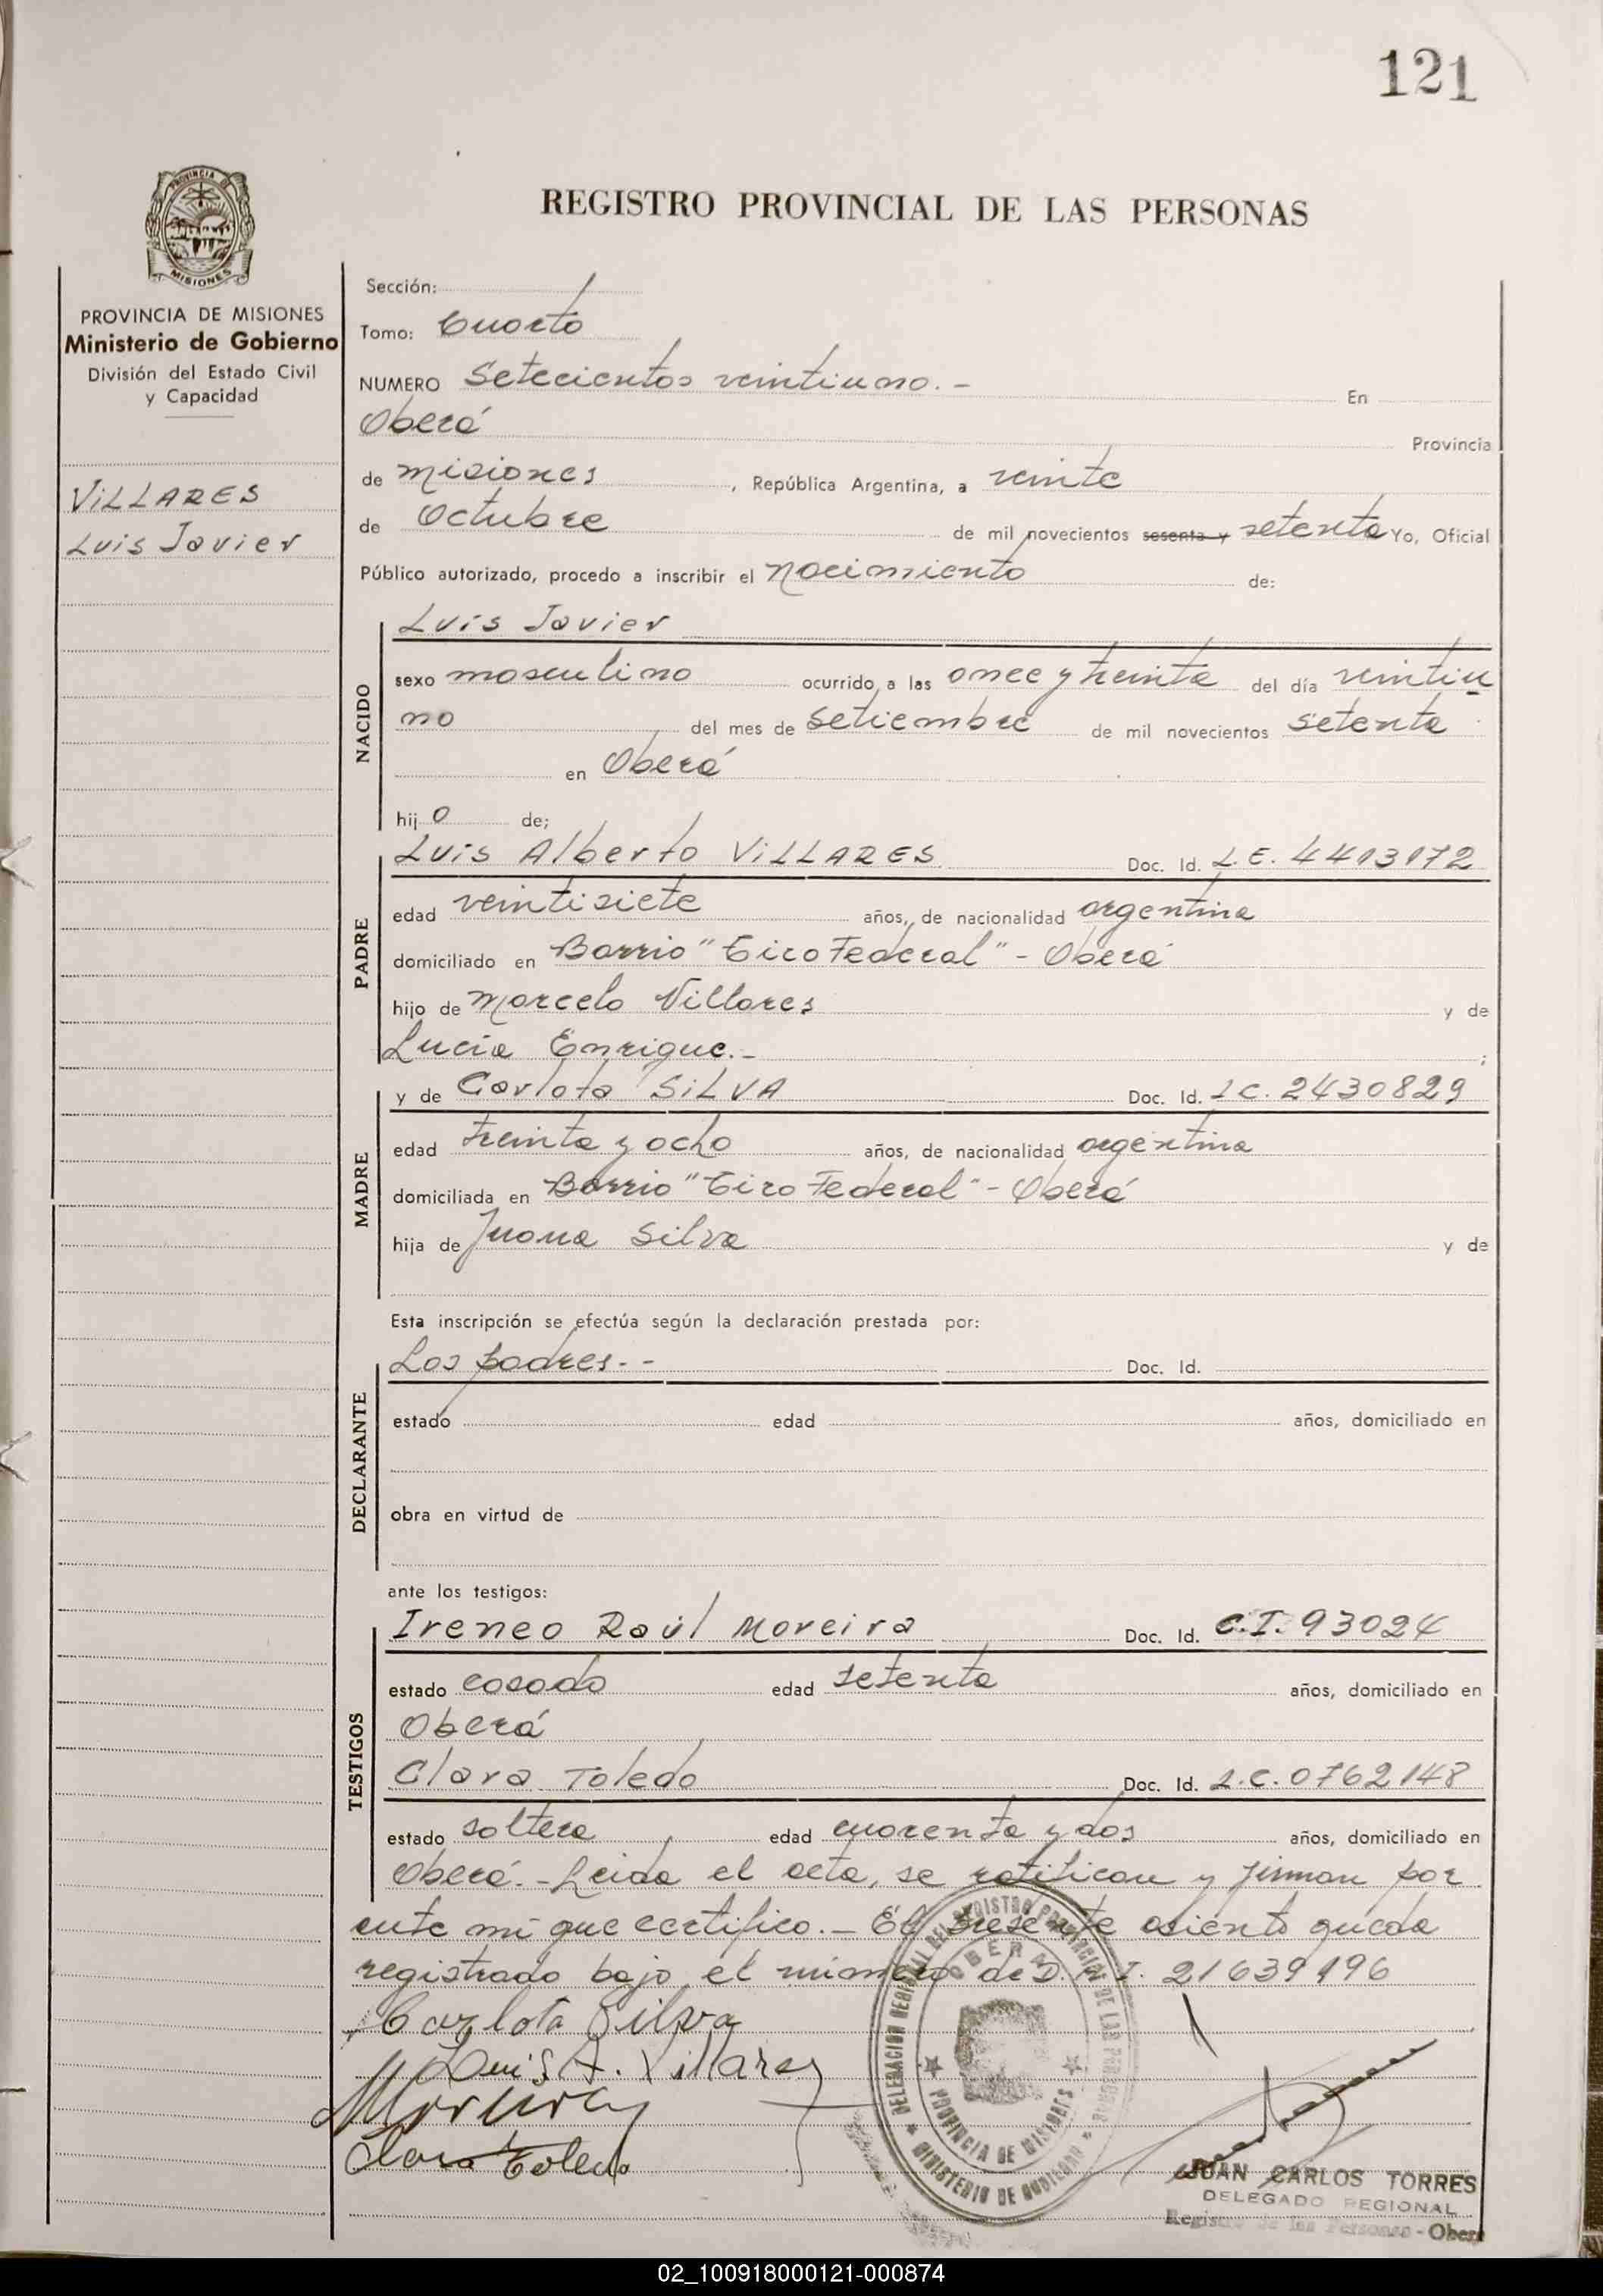 121
REGISTRO PROVINCIAL DE LAS PERSONAS
PROVINCIA DE
MISIONES
PROVINCIA DE MISIONES
Ministerio de Gobierno
División del Estado Civil
y Capacidad
VILLARES
Luis Javier
Sección:
Tomo: Cuarto
NUMERO Setecientos veintiuno.- En
Oberá Provincia
de Misiones, República Argentina, a veinte
de Octubre de mil novecientos sesenta y setenta Yo, Oficial
Público autorizado, procedo a inscribir el Nacimiento de:
NACIDO
Luis Javier
sexo masculino ocurrido a las once y treinta del día veintiu
no del mes de Setiembre de mil novecientos setenta
en Oberá
hijo de;
PADRE
Luis Alberto VILLARES Doc. Id. L.E. 4413172
edad veintisiete años, de nacionalidad argentina
domiciliado en Barrio "Tiro Federal" - Oberá
hijo de Marcelo Villares y de
Lucía Enrique.-;
MADRE
y de Carlota SILVA Doc. Id. LC. 2430829
edad treinta y ocho años, de nacionalidad argentina
domiciliada en Barrio "Tiro Federal" - Oberá
hija de Juana Silva y de
Esta inscripción se efectúa según la declaración prestada por:
DECLARANTE
Los padres.- - Doc. Id.
estado edad años, domiciliado en
obra en virtud de
ante los testigos:
TESTIGOS
Ireneo Raúl Moreira Doc. Id. C.I. 93024
estado casado edad setenta años, domiciliado en
Oberá
Clara Toledo Doc. Id. L.C. 0762148
estado soltera edad cuarenta y dos años, domiciliado en
Oberá.- Leida el acta, se ratifican y firman por
ante mí que certifico.- El presente asiento queda
registrado bajo el número de D.N.I. 21639196
Carlota Silva
Luis A. Villares
Clara Toledo
DELEGACION REGIONAL DEL REGISTRO PROVINCIAL DE LAS PERSONAS
OBERA
PROVINCIA DE MISIONES
MINISTERIO DE GOBIERNO
JUAN CARLOS TORRES
DELEGADO REGIONAL
Registro de las Personas - Oberá
02_100918000121-000874